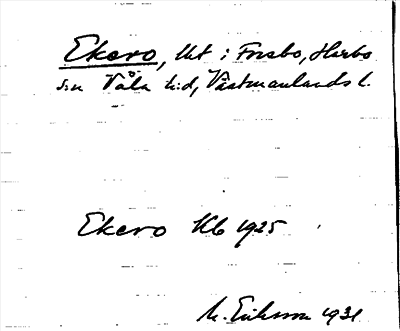 Ekero, lht i Forsbo, Harbo
sn Våla hd, Västmanlands l.
Ekero Kb 1925
M. Eriksson 1931